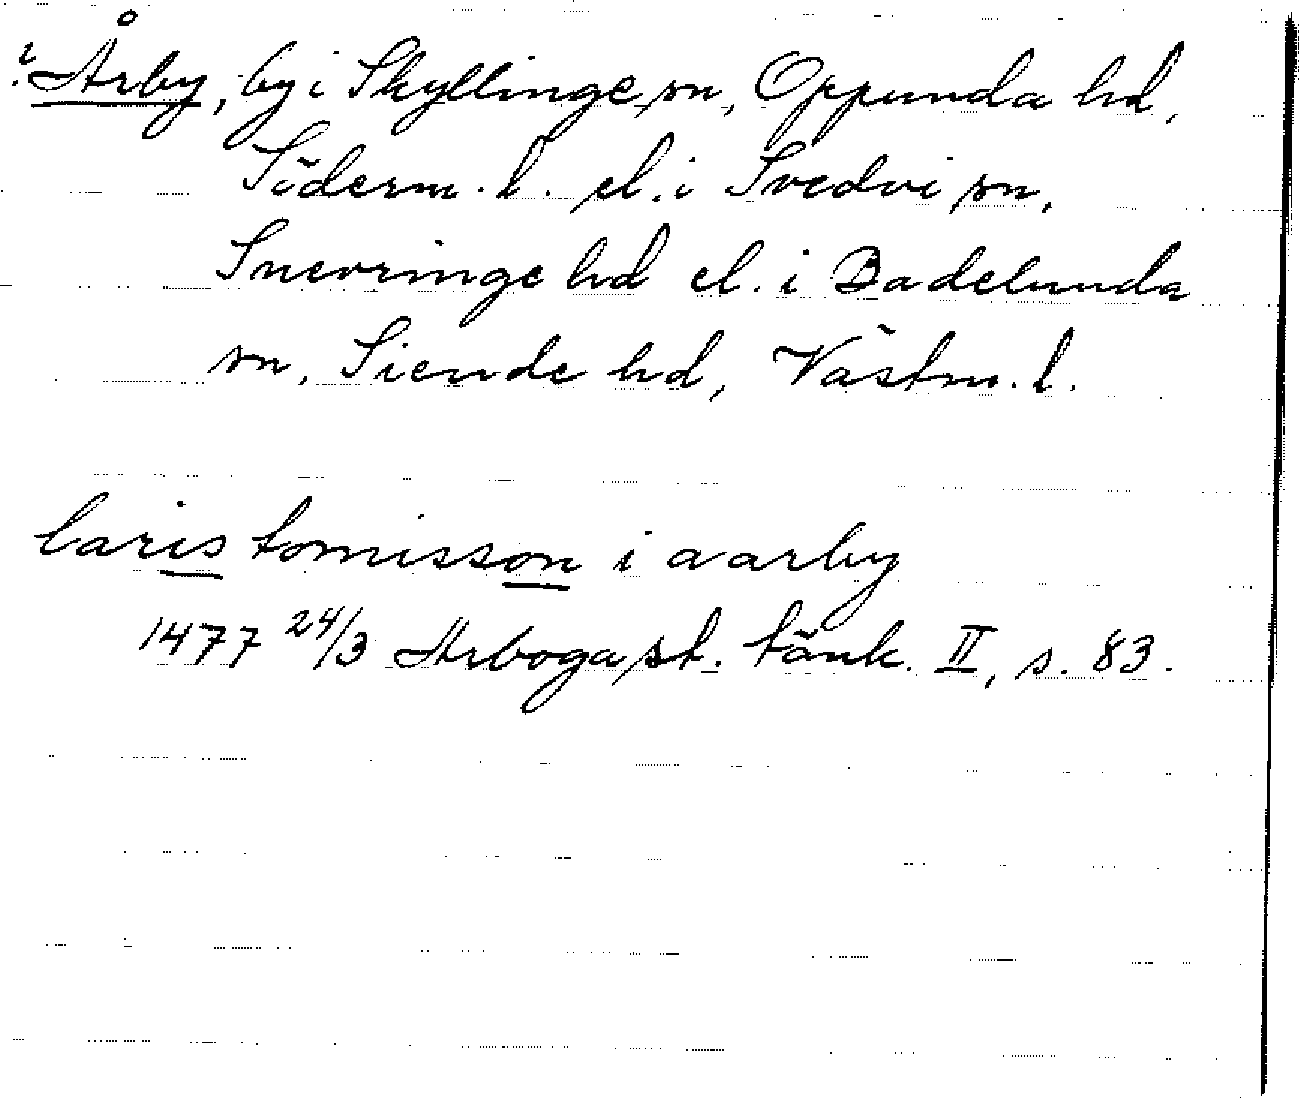 ? Årby, by i Skyllinge sn, Oppunda hd,
Söderm. l. el. i Svedvi sn,
Snevringe hd el. i Badelunda
sn, Siende hd, Västm. l.
laris tomisson i aarby
1477 24/3 Arboga st. tänk. II, s. 83.